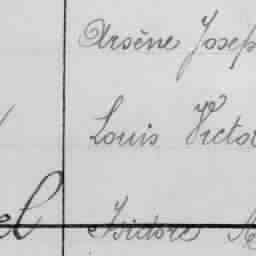 Arsène Josep
Louis Victo
el Isidore